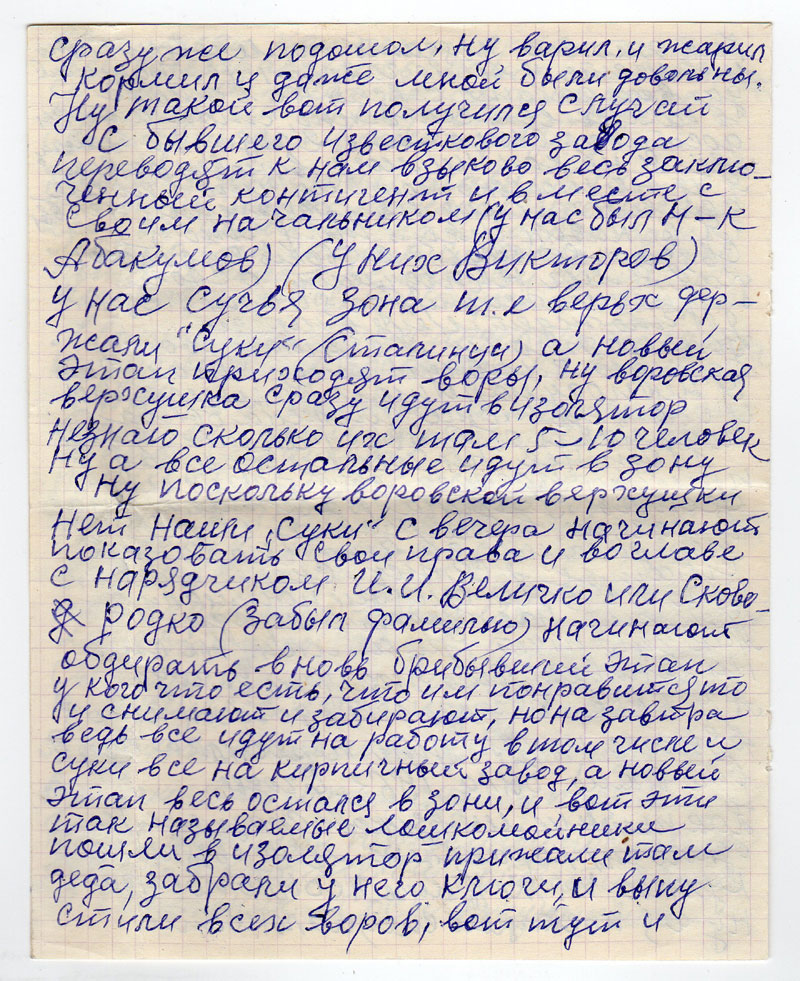 сразу же подошол, ну варил, и жарил
кормил и даже мной были довольны.
Ну такой вот получился случай
С бывшего известкового завода
переводят к нам взыково весь заклю-
ченный контигент и вместе с
своим начальником (у нас был н-к
Абакумов) (У них Викторов)
у нас сучья зона т.е верьх дер-
жали "суки" (Сталинци) а новый
этап приходят воры, ну воровская
верхушка сразу идут в изолятор
незнаю сколько их там 5-10 человек
ну а все остальные идут в зону
ну поскольку воровской верхушки
нет наши "суки" с вечера начинают
показовать свои права и во главе
с нарядчиком И.И. Величко или Сково-
родко (забыл фамилью) начинают
обдирать вновь брибывший этап
у кого что есть, что им понравится то
и снимают и забирают, но на завтра
ведь все идут на работу в том числе и
суки все на кирпичный завод, а новый
этап весь остался в зони, и вот эти
так называемые лошкомойники
пошли в изолятор прижали там
деда, забрали у него ключи, и выпу
стили всех воров, вот тут и